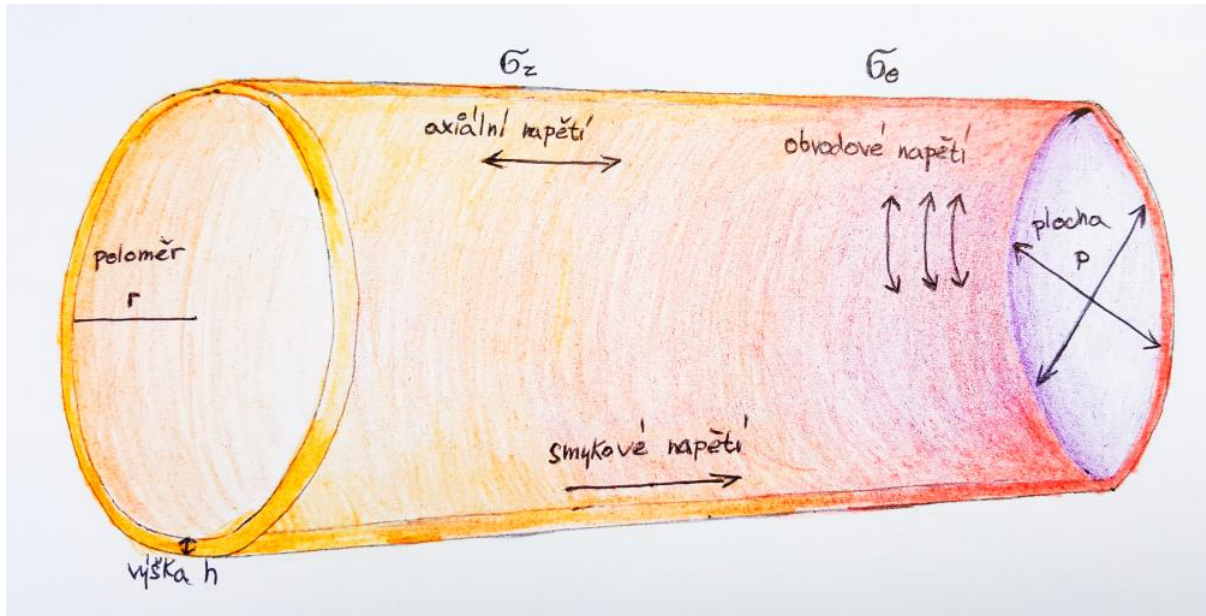 σz
σθ
axiální napětí
obvodové napětí
plocha
p
poloměr
r
smykové napětí
výška h